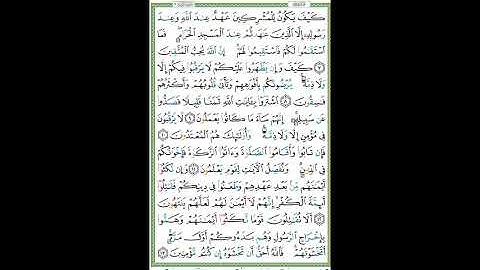 كَيْفَ يَكُونُ لِلْمُشْرِكِينَ عَهْدٌ عِندَ اللَّهِ وَعِندَ
رَسُولِهِ إِلَّا الَّذِينَ عَاهَدتُّمْ عِندَ الْمَسْجِدِ الْحَرَامِ فَمَا
اسْتَقَامُوا لَكُمْ فَاسْتَقِيمُوا لَهُمْ إِنَّ اللَّهَ يُحِبُّ الْمُتَّقِينَ
٧ كَيْفَ وَإِن يَظْهَرُوا عَلَيْكُمْ لَا يَرْقُبُوا فِيكُمْ إِلًّا
وَلَا ذِمَّةً يُرْضُونَكُم بِأَفْوَاهِهِمْ وَتَأْبَى قُلُوبُهُمْ وَأَكْثَرُهُمْ
فَاسِقُونَ ٨ اشْتَرَوْا بِآيَاتِ اللَّهِ ثَمَنًا قَلِيلًا فَصَدُّوا
عَن سَبِيلِهِ إِنَّهُمْ سَاءَ مَا كَانُوا يَعْمَلُونَ ٩ لَا يَرْقُبُونَ
فِي مُؤْمِنٍ إِلًّا وَلَا ذِمَّةً وَأُولَئِكَ هُمُ الْمُعْتَدُونَ ١٠
فَإِن تَابُوا وَأَقَامُوا الصَّلَاةَ وَآتَوُا الزَّكَاةَ فَإِخْوَانُكُمْ
فِي الدِّينِ وَنُفَصِّلُ الْآيَاتِ لِقَوْمٍ يَعْلَمُونَ ١١ وَإِن نَّكَثُوا
أَيْمَانَهُم مِّن بَعْدِ عَهْدِهِمْ وَطَعَنُوا فِي دِينِكُمْ فَقَاتِلُوا
أَئِمَّةَ الْكُفْرِ إِنَّهُمْ لَا أَيْمَانَ لَهُمْ لَعَلَّهُمْ يَنتَهُونَ
١٢ أَلَا تُقَاتِلُونَ قَوْمًا نَّكَثُوا أَيْمَانَهُمْ وَهَمُّوا
بِإِخْرَاجِ الرَّسُولِ وَهُم بَدَءُوكُمْ أَوَّلَ مَرَّةٍ
أَتَخْشَوْنَهُمْ فَاللَّهُ أَحَقُّ أَن تَخْشَوْهُ إِن كُنتُم مُّؤْمِنِينَ ١٣